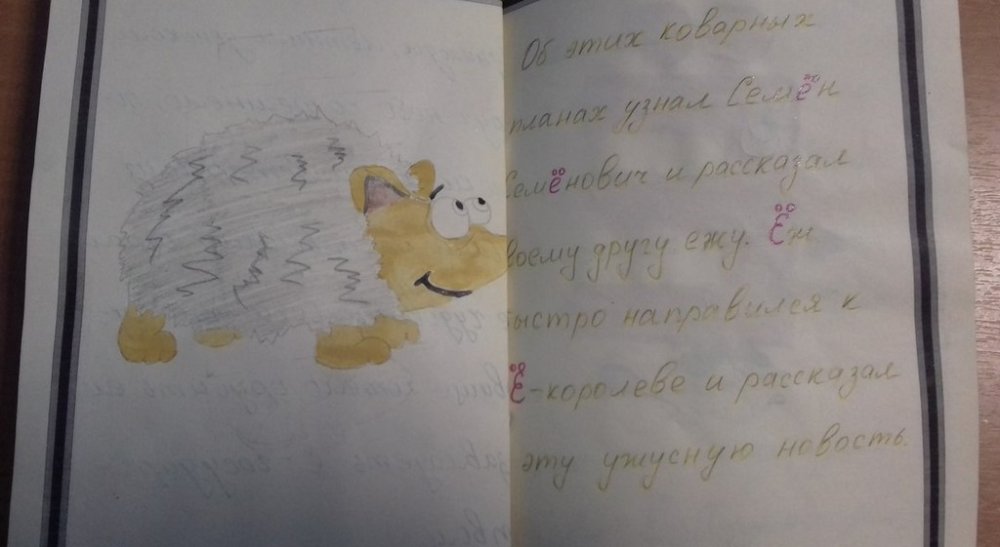 Об этих коварных
планах узнал Семён
Семёнович и рассказал
своему другу ежу. Ёж
быстро направился к
Ё-королеве и рассказал
эту ужусную новость.